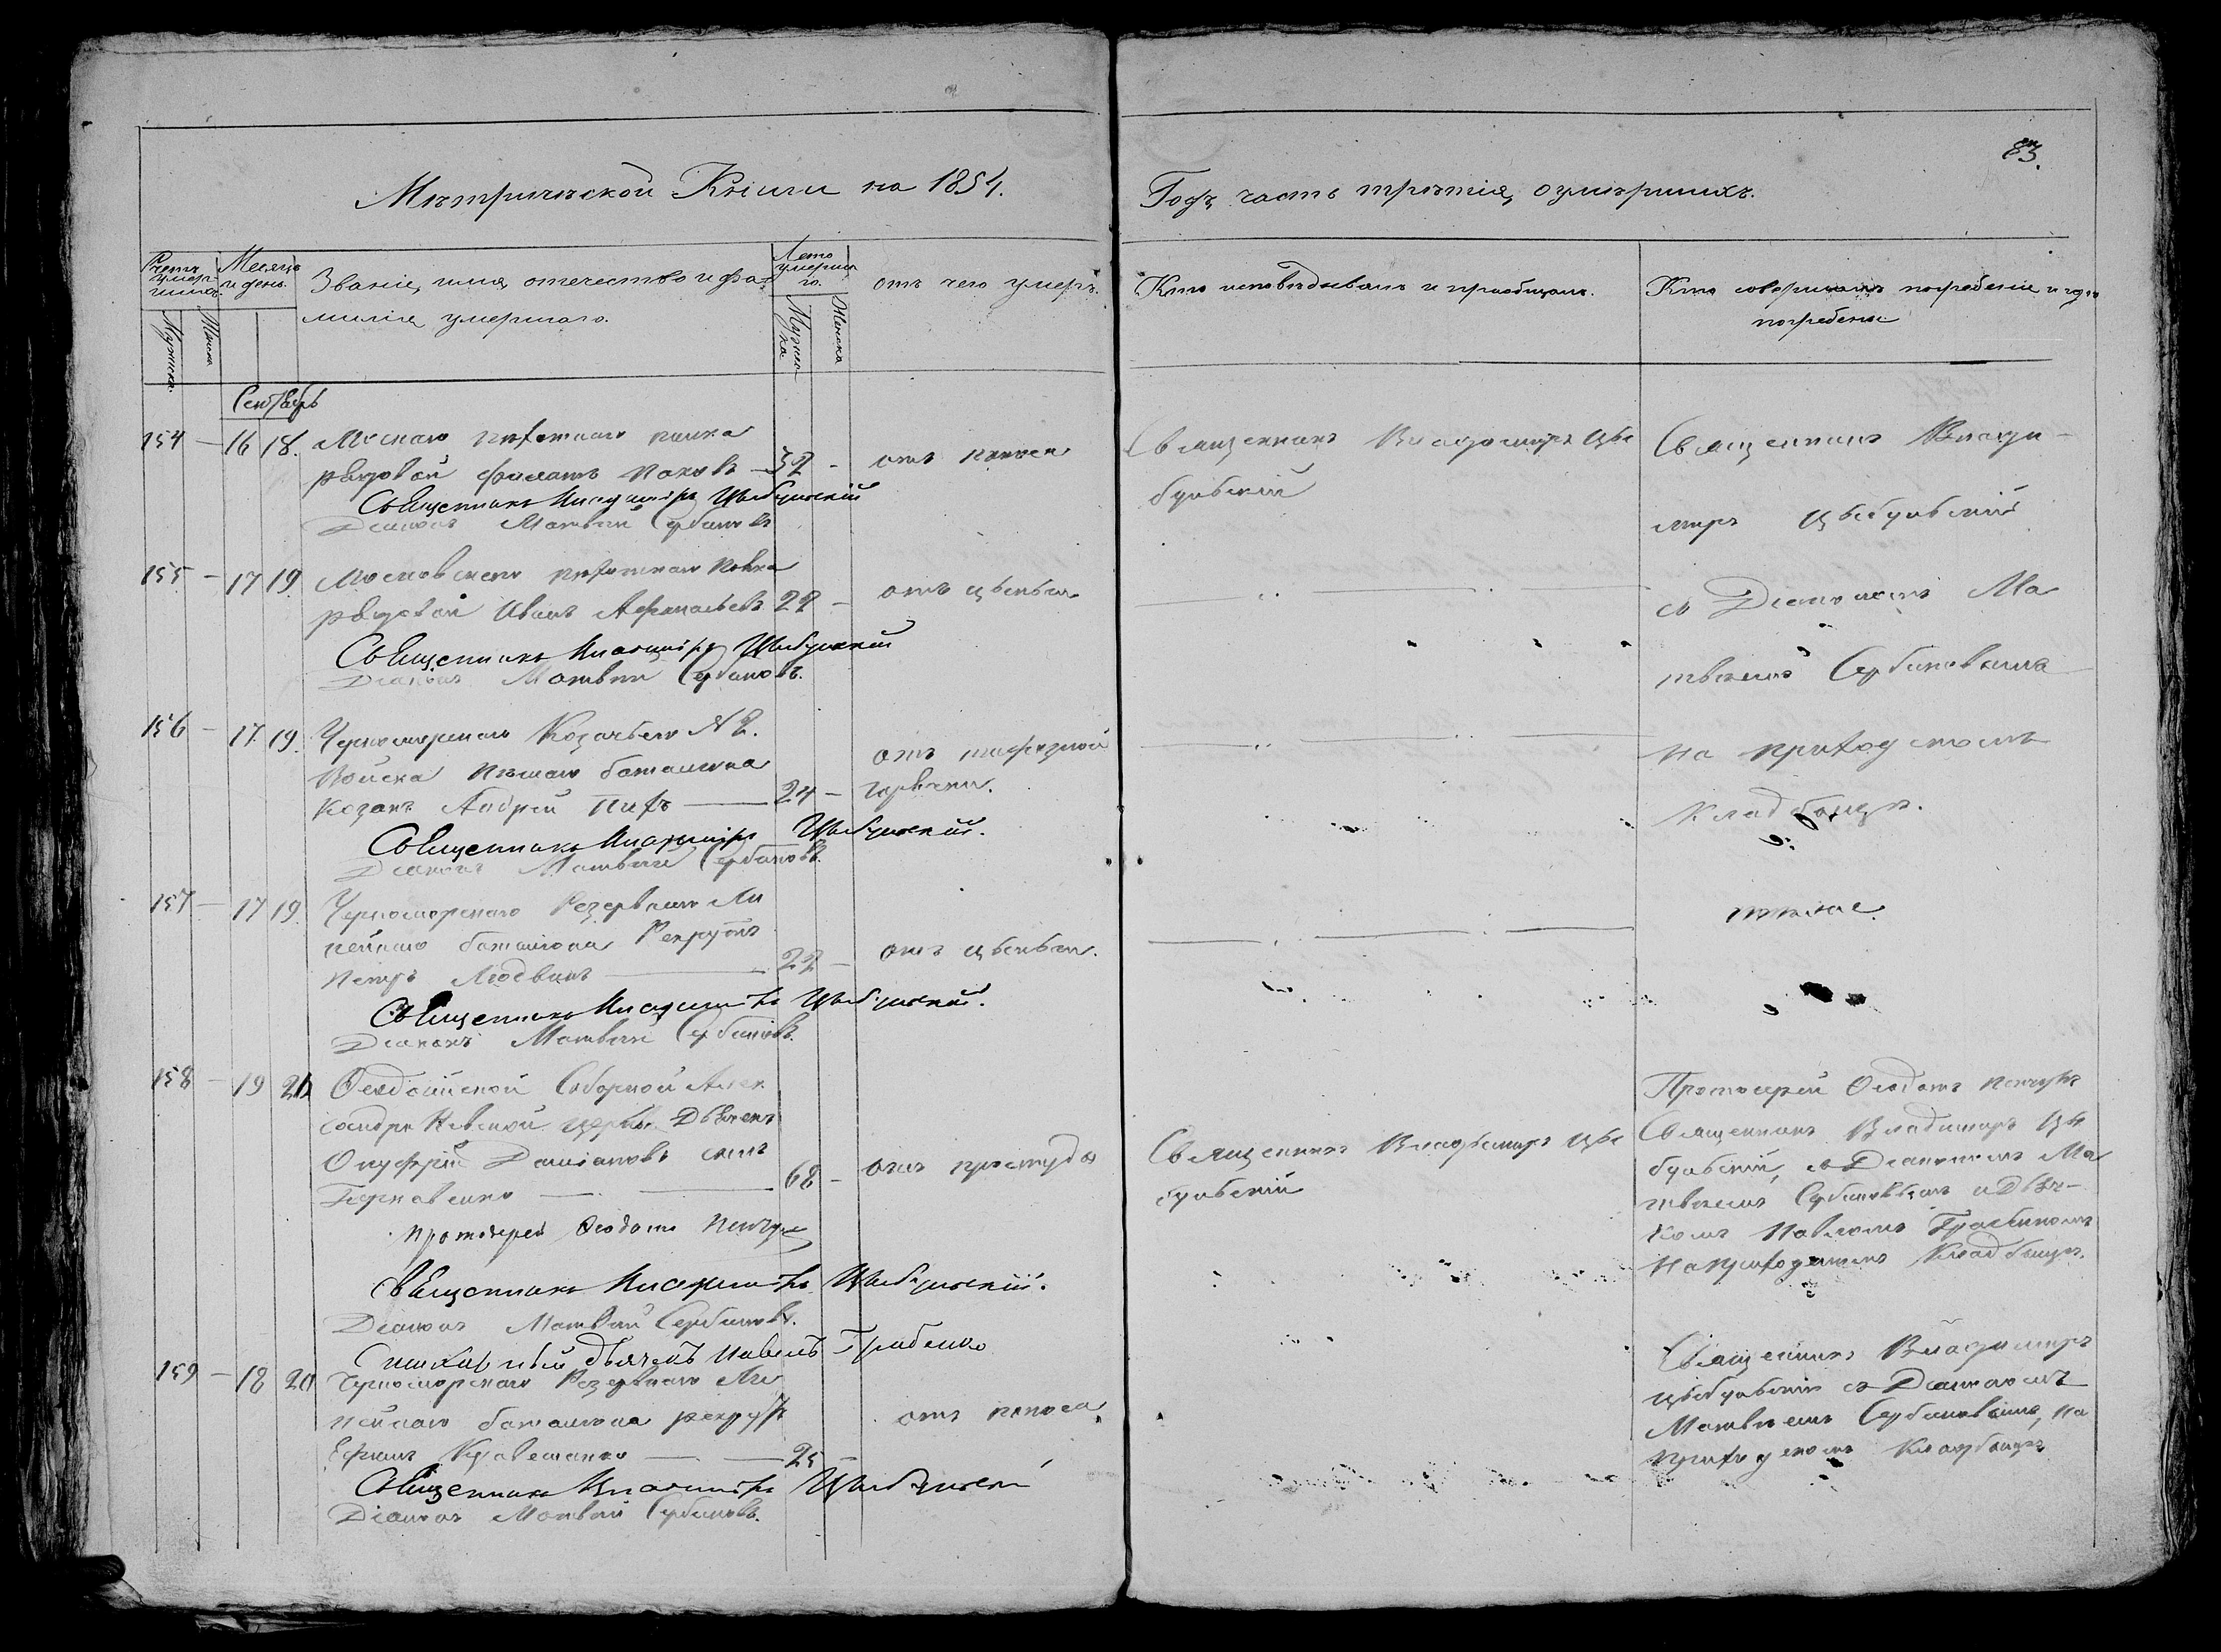 83.
Метрической Книги на 1854.
Годъ часть третія, о умершихъ.
Счетъ умершихъ.
Мужска.
Женска
Месяцъ и день.
Званіе, имя, отечество и фамилія умершаго.
Лета умершаго.
Мужеска
Женска
отъ чего умеръ.
Кто исповѣдывалъ и пріобщалъ.
Кто совершалъ погребеніе и гдѣ
погребены
Сентябрь
154 — 16 18.
пѣхотнаго полка
рядовой Филатъ — 32 —
отъ поноса
Священникъ Владимиръ Цыбульскій
Діаконъ Матвѣй Сербиновъ
Священникъ Владимиръ Цы
бульскій
Священникъ Влади-
миръ Цыбульскій
155 — 17 19
Московскаго пѣхотнаго полка
рядовой Иванъ Афанасьевъ 22 —
отъ цынги
Священникъ Владимиръ Цыбульскій
Діаконъ Матвѣй Сербиновъ.
съ Діакономъ Ма
твѣемъ Сербиновымъ
156 — 17. 19.
Черноморскаго Козачьего № 2.
Войска пѣшаго баталіона
Козакъ Андрей — 24 —
отъ
горячки.
Священникъ Владимиръ Цыбульскій.
Діаконъ Матвѣй Сербиновъ.
на приходскомъ
кладбищѣ.
157 — 17 19
Черноморскаго Резервнаго Ли
нейнаго баталіона Рекрутъ
Петръ — 22 —
отъ цынги.
Священникъ Владимиръ Цыбульскій.
Діаконъ Матвѣй Сербиновъ.
тоже.
158 — 19
Феодосійской Соборной Алек
сандро Невской церкви Дьячекъ
Онуфрій Даміановъ сынъ
— 68 —
отъ простуды
Протоіерей Феодотъ
Священникъ Владимиръ Цыбульскій.
Діаконъ Матвѣй Сербиновъ.
дьячекъ Павелъ
Священникъ Владимиръ Цы
бульскій
Протоіерей Феодотъ
Священникъ Владимиръ Цы
бульскій, съ Діакономъ Ма
твѣемъ Сербиновымъ и Дьяч-
комъ Павломъ
на приходскомъ Кладбищѣ.
159 — 18 20
Черноморскаго Резервнаго Ли
нейнаго баталіона рекрутъ
Ефимъ — 25 —
отъ поноса
Священникъ Владимиръ Цыбульскій
Діаконъ Матвѣй Сербиновъ.
Священникъ Владимиръ
Цыбульскій съ Діакономъ
Матвѣемъ Сербиновымъ, на
приходскомъ Кладбищѣ